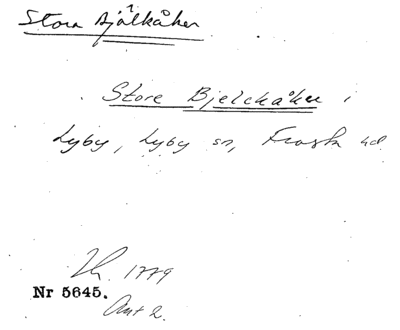 Stora Bjälkåker
Store Bjelckåker i
Lyby, Lyby sn, Frosta hd
1779
Nr 5645.
Akt 2.